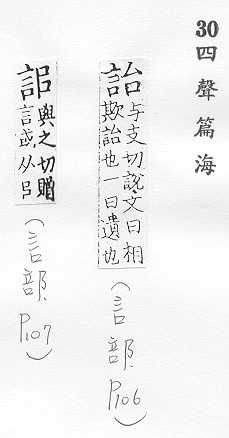 30
四聲篇海
詒
与支切說文曰相
欺詒也一曰遺也
(言部 P106)
與之切贈
言或从吕
(言部 P107)